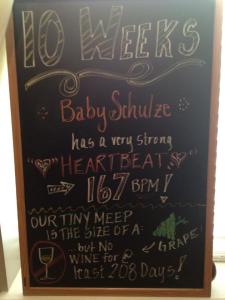 10 WEEKS
Baby Schulze
has a very strong
"HEARTBEAT"
167 BPM!
OUR TINY MEEP
IS THE SIZE OF A:
GRAPE!
...but NO
WINE for @
least 208 Days!